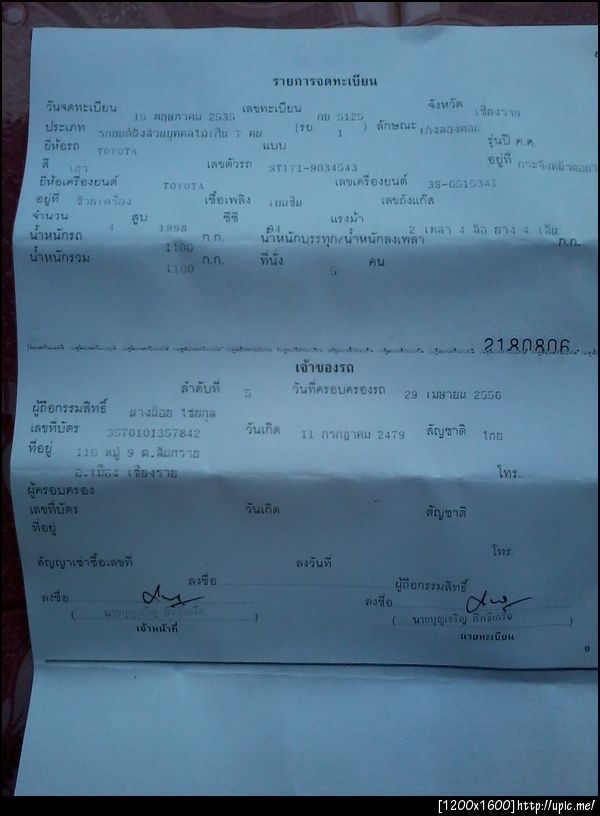 รายการจดทะเบียน
วันจดทะเบียน 15 พฤษภาคม 2535 เลขทะเบียน กย 5125 จังหวัด เชียงราย
ประเภท รถยนต์นั่งส่วนบุคคลไม่เกิน 7 คน (รย. 1 ) ลักษณะ เก๋งสองตอน
ยี่ห้อรถ TOYOTA แบบ รุ่นปี ค.ศ.
สี เทา เลขตัวรถ ST171-9034543 อยู่ที่
ยี่ห้อเครื่องยนต์ TOYOTA เลขเครื่องยนต์ 3S-6515341
อยู่ที่ ซ้ายเครื่อง เชื้อเพลิง เบนซิน เลขถังแก๊ส
จำนวน 4 สูบ 1998 ซีซี 94 แรงม้า 2 เพลา 4 ล้อ ยาง 4 เส้น
น้ำหนักรถ 1100 ก.ก. น้ำหนักบรรทุก/น้ำหนักลงเพลา ก.ก.
น้ำหนักรวม 1100 ก.ก. ที่นั่ง 5 คน
2180806
เจ้าของรถ
ลำดับที่ 5 วันที่ครอบครองรถ 29 เมษายน 2556
ผู้ถือกรรมสิทธิ์ นางน้อย ไชยกุล
เลขที่บัตร 3570101357842 วันเกิด 11 กรกฎาคม 2479 สัญชาติ ไทย
ที่อยู่ 116 หมู่ 9 ต.สันทราย
อ.เมือง เชียงราย โทร.
ผู้ครอบครอง
เลขที่บัตร วันเกิด สัญชาติ
ที่อยู่
โทร.
สัญญาเช่าซื้อเลขที่ ลงวันที่
ลงชื่อ ผู้ถือกรรมสิทธิ์
ลงชื่อ ลงชื่อ
( นายบุญเจริญ ) ( นายบุญเจริญ สิทธิเครือ )
เจ้าหน้าที่ นายทะเบียน
[1200x1600]http://upic.me/